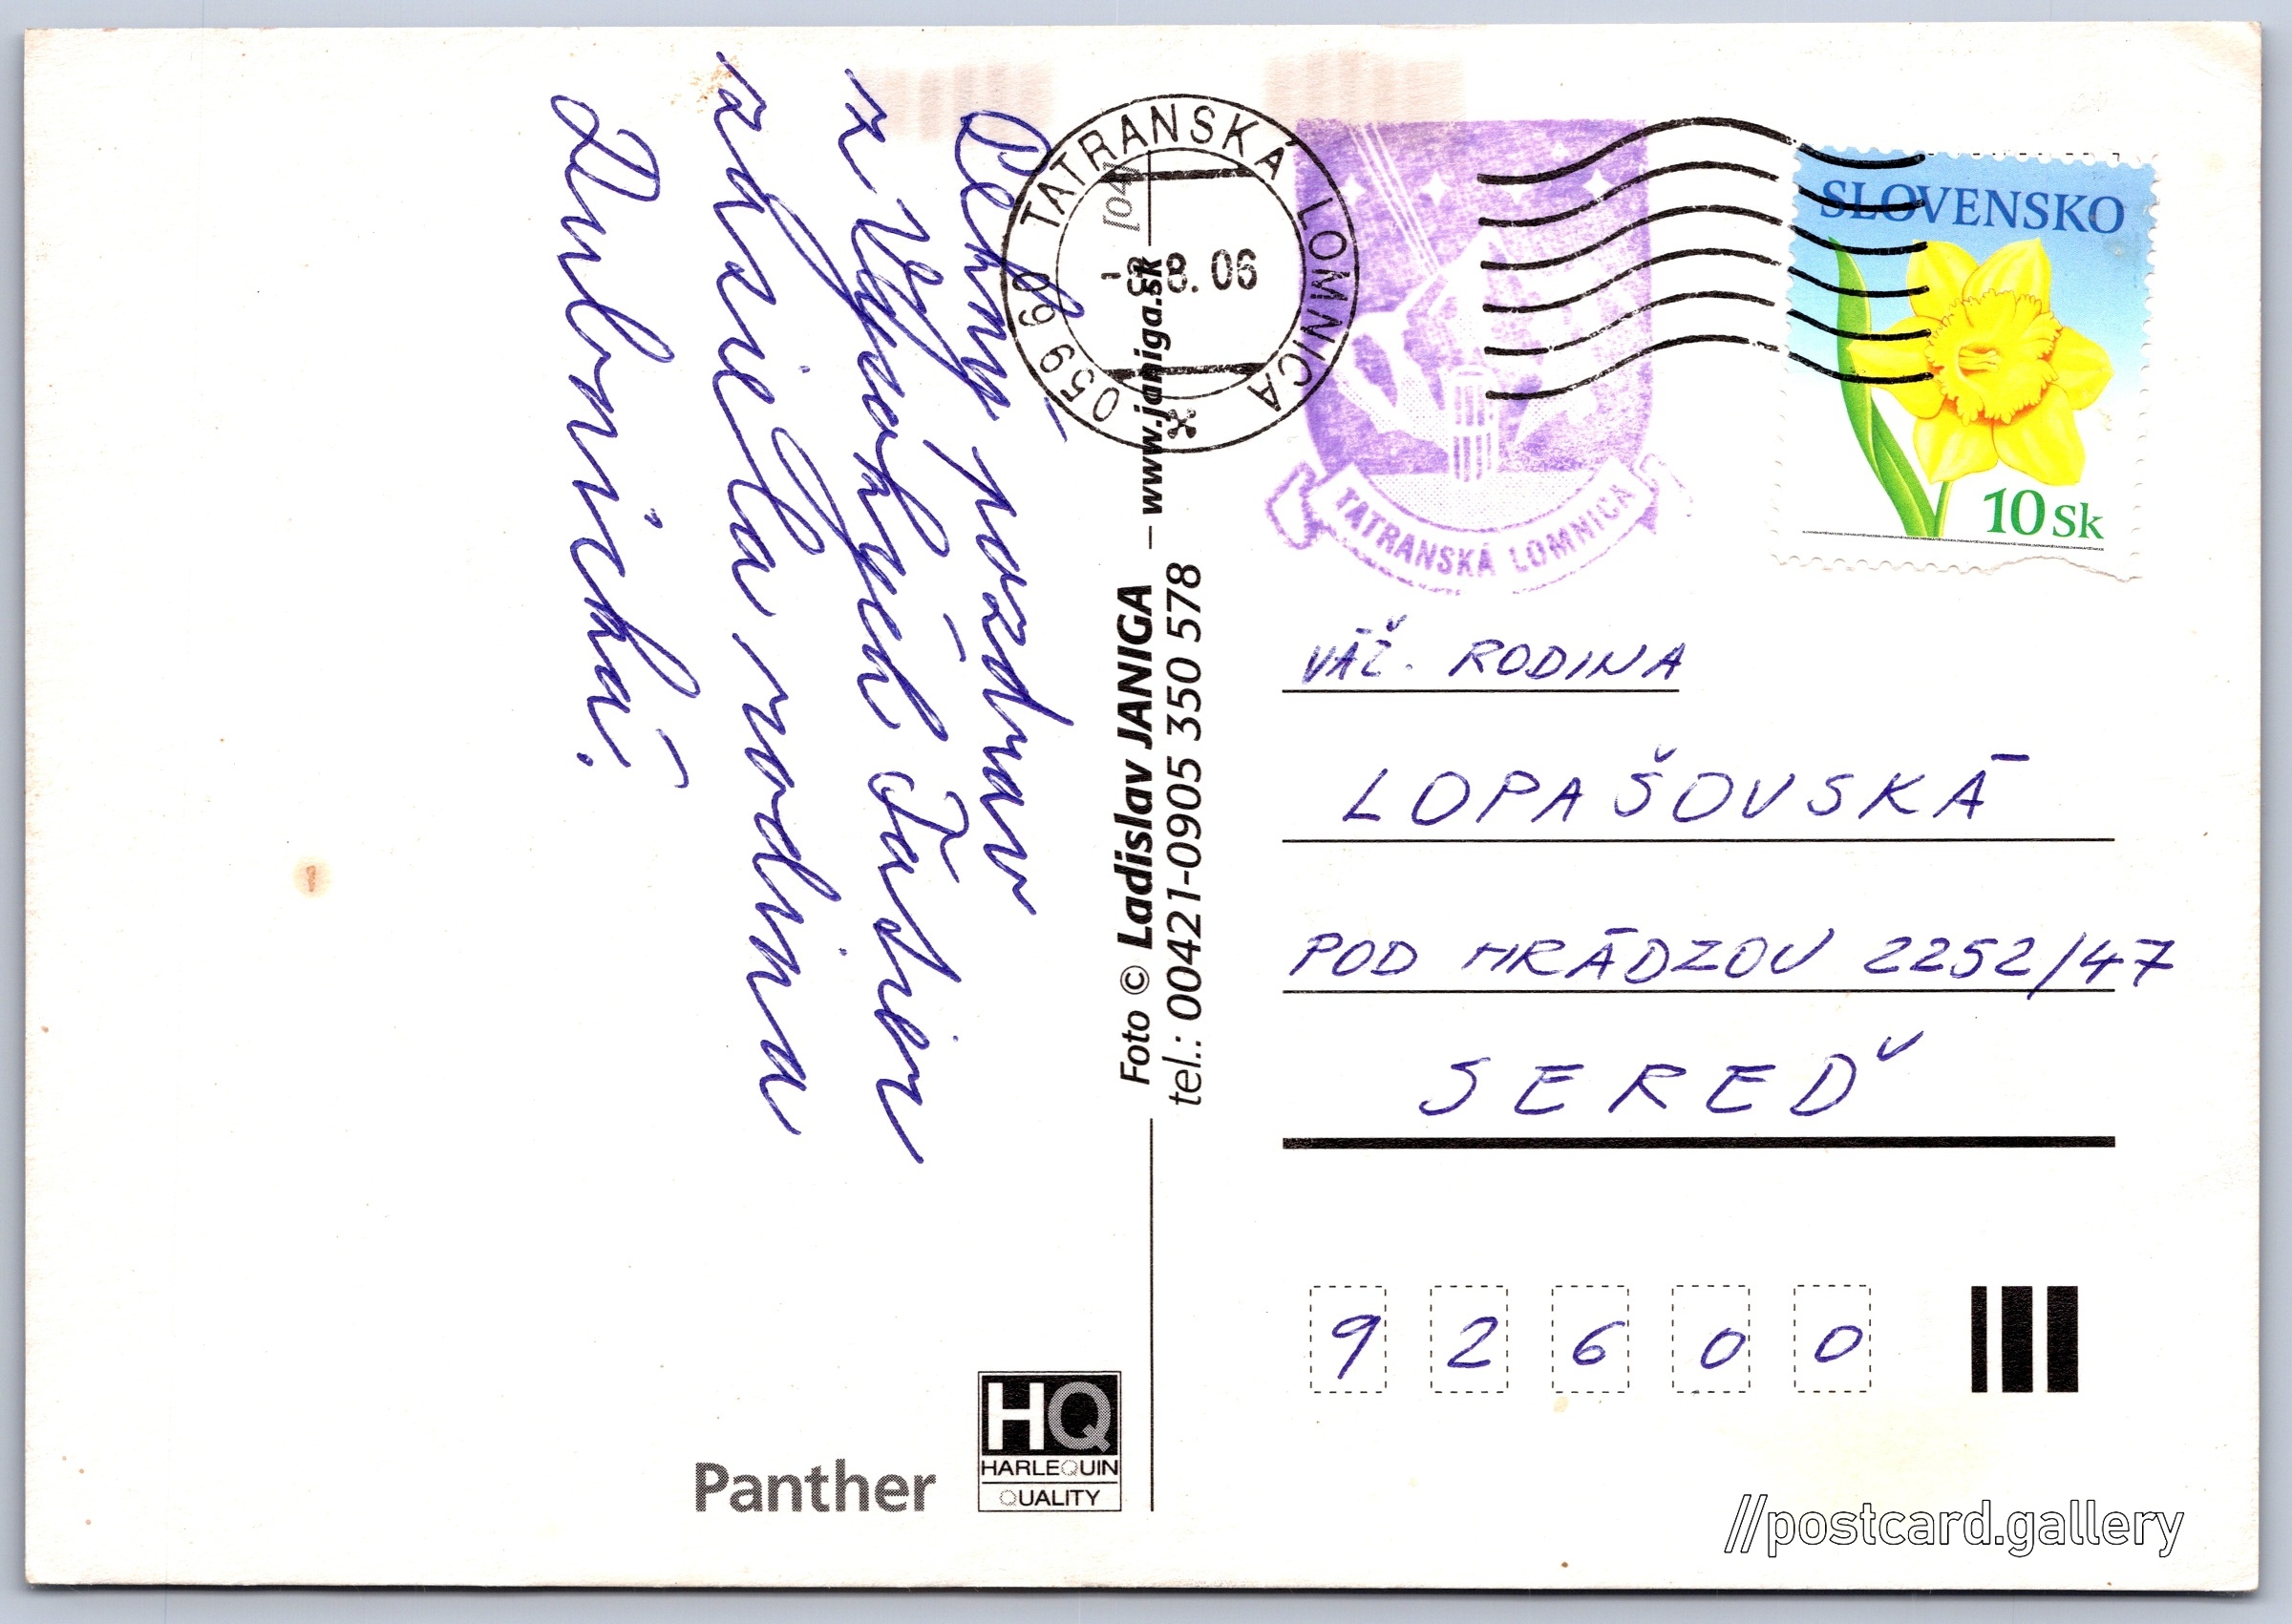 Pekný pozdrav
z Vysokých Tatier
zasiela rodina
Dubnická.
Foto © Ladislav JANIGA – www.janiga.sk [04]
tel.: 00421-0905 350 578
Panther
HQ
HARLEQUIN
QUALITY
059 60 TATRANSKÁ LOMNICA
8. 06
TATRANSKÁ LOMNICA
SLOVENSKO
10 Sk
VÁŽ. RODINA
LOPAŠOVSKÁ
POD HRÁDZOU 2252/47
SEREĎ
92600
//postcard.gallery